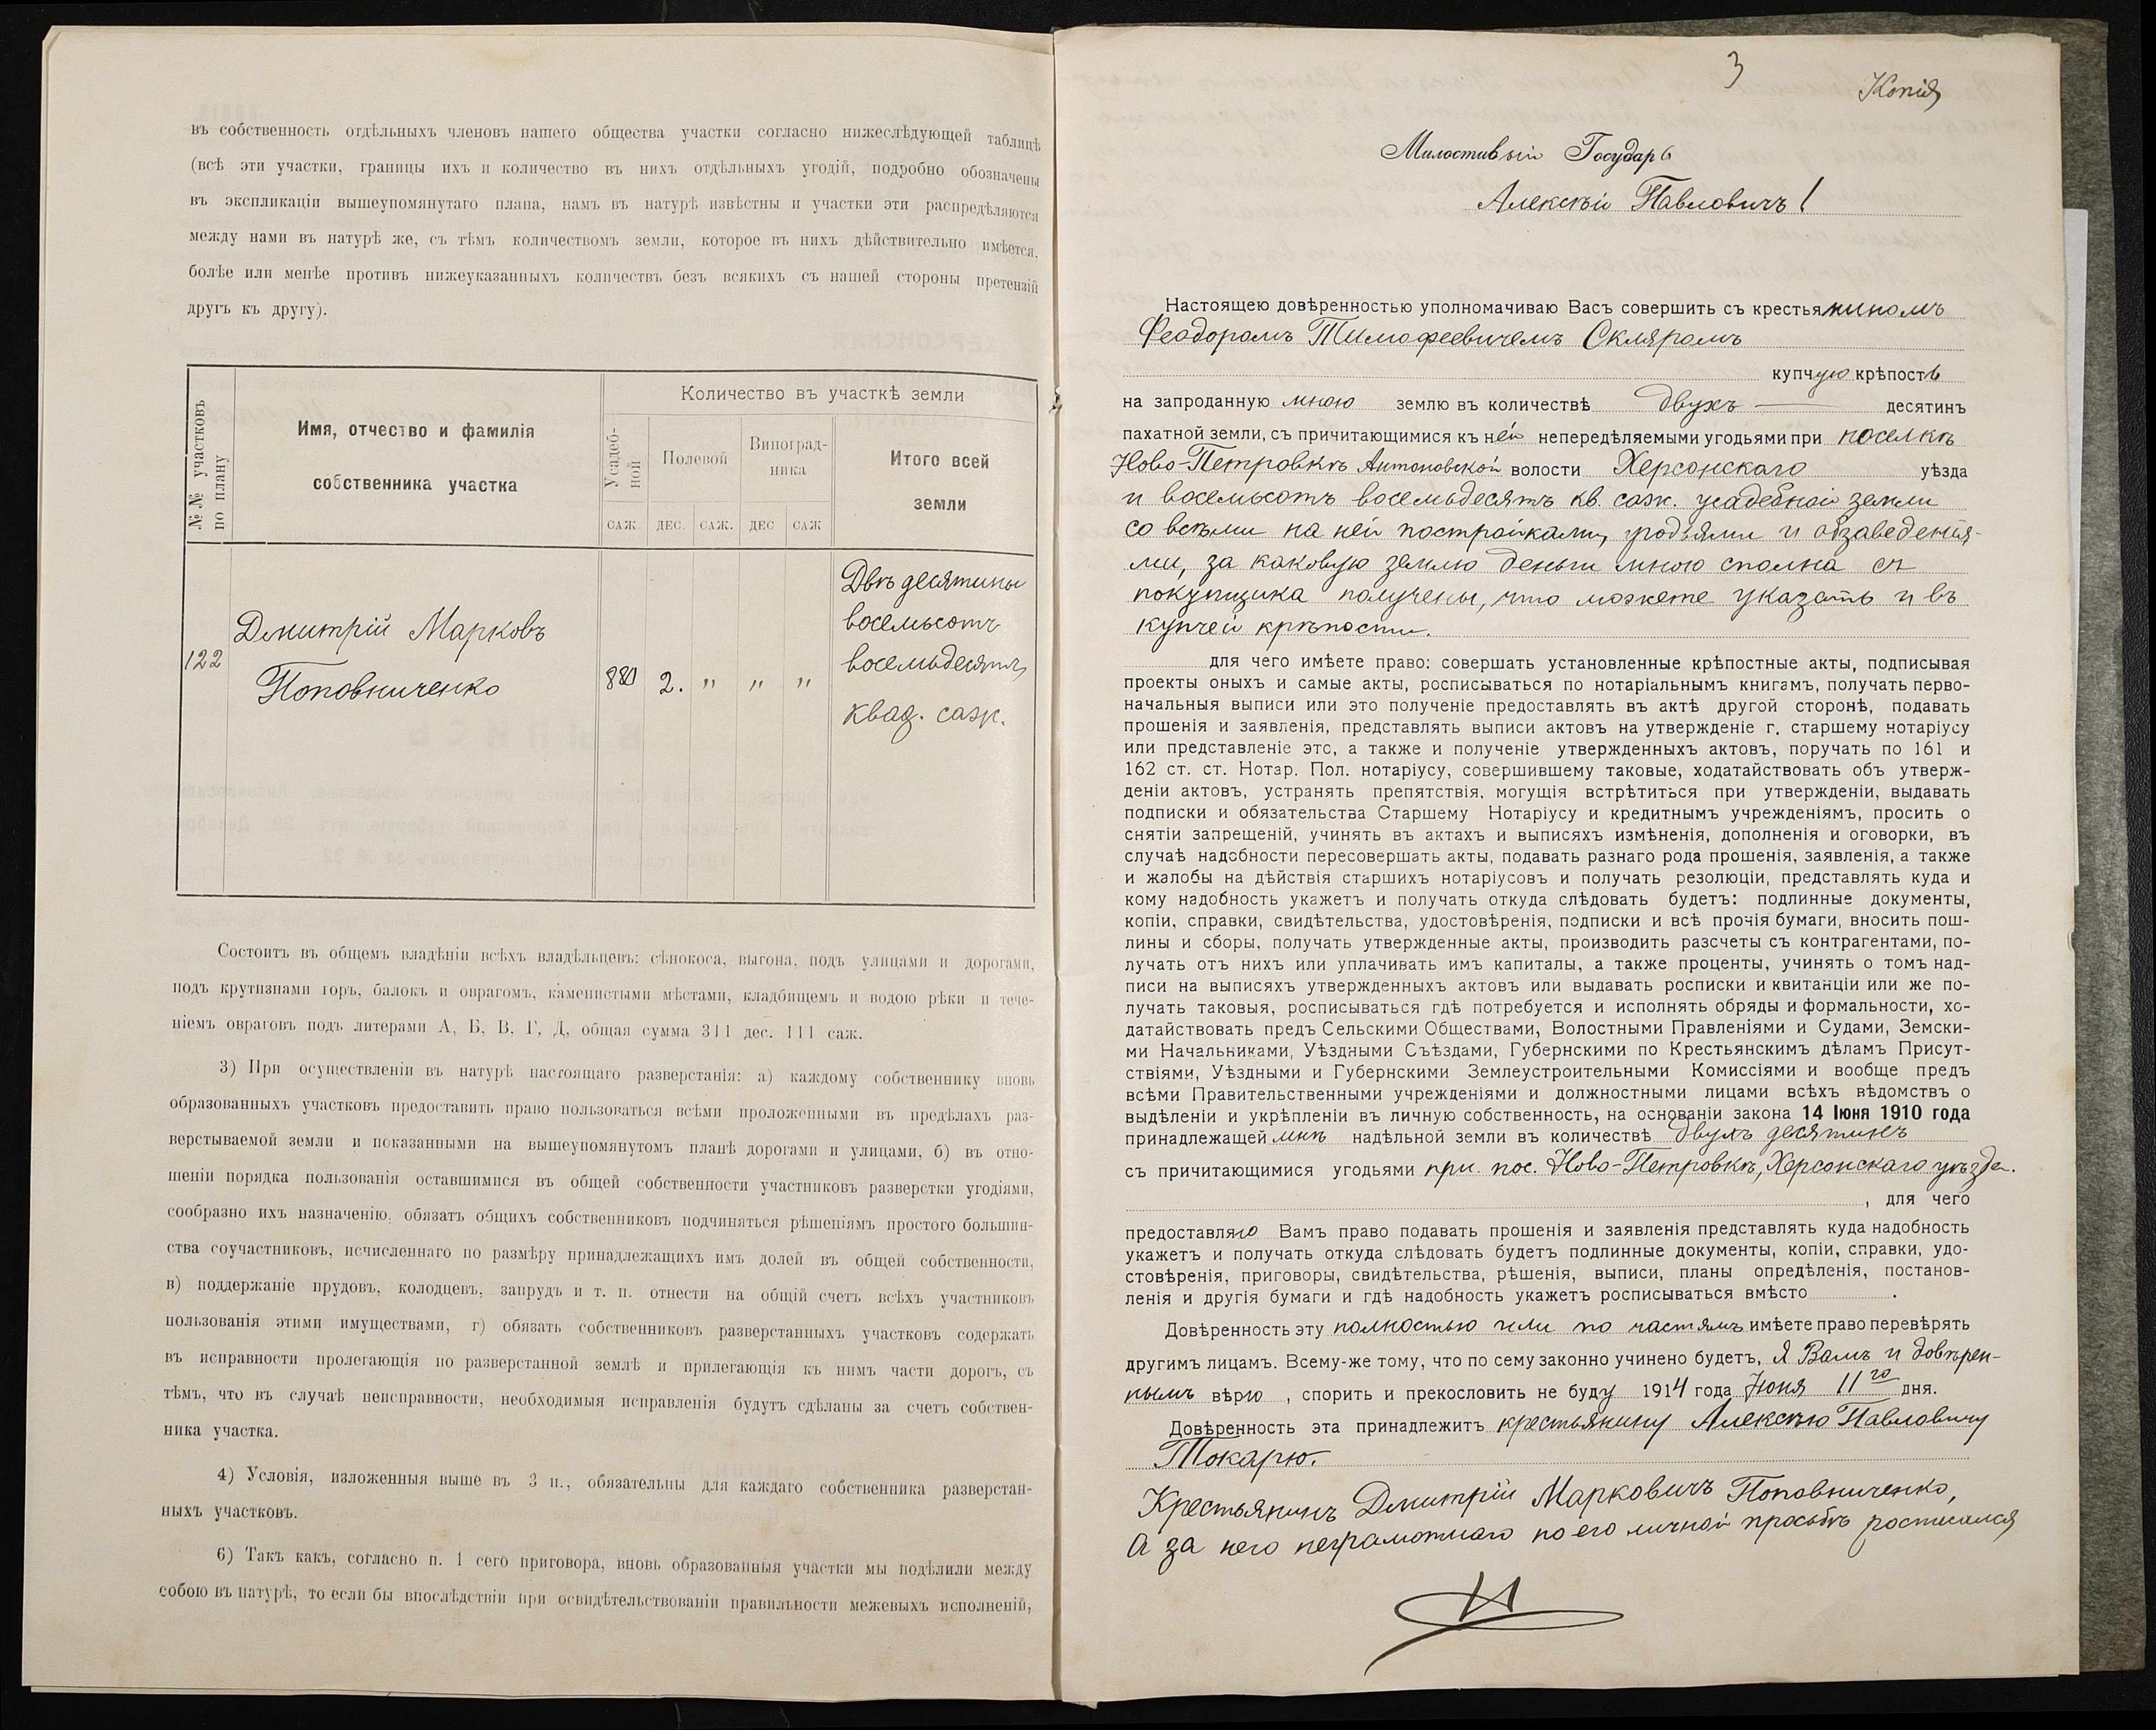 въ собственность отдѣльныхъ членовъ нашего общества участки согласно нижеслѣдующей таблицѣ
(всѣ эти участки, границы ихъ и количество въ нихъ отдѣльныхъ угодій, подробно обозначены
въ экспликаціи вышеупомянутаго плана, намъ въ натурѣ извѣстны и участки эти распредѣляются
между нами въ натурѣ же, съ тѣмъ количествомъ земли, которое въ нихъ дѣйствительно имѣется,
болѣе или менѣе противъ нижеуказанныхъ количествъ безъ всякихъ съ нашей стороны претензій
другъ къ другу).
№№ участковъ по плану
Имя, отчество и фамилія
собственника участка
Количество въ участкѣ земли
Усадеб-
ной
Полевой
Виноград-
ника
Итого всей
земли
САЖ. ДЕС. САЖ. ДЕС САЖ
122
Дмитрій Марковъ
Поповниченко
880 2. " " "
Двѣ десятины
восемьсотъ
восемьдесятъ
квад. саж.
Состоитъ въ общемъ владѣніи всѣхъ владѣльцевъ: сѣнокоса, выгона, подъ улицами и дорогами,
подъ крутизнами горъ, балокъ и оврагомъ, каменистыми мѣстами, кладбищемъ и водою рѣки и тече-
ніемъ овраговъ подъ литерами А, Б, В, Г, Д, общая сумма 311 дес. 111 саж.
3) При осуществленіи въ натурѣ настоящаго разверстанія: а) каждому собственнику вновь
образованныхъ участковъ предоставить право пользоваться всѣми проложенными въ предѣлахъ раз-
верстываемой земли и показанными на вышеупомянутомъ планѣ дорогами и улицами, б) въ отно-
шеніи порядка пользованія оставшимися въ общей собственности участниковъ разверстки угодіями,
сообразно ихъ назначенію, обязать общихъ собственниковъ подчиняться рѣшеніямъ простого большин-
ства соучастниковъ, исчисленнаго по размѣру принадлежащихъ имъ долей въ общей собственности,
в) поддержаніе прудовъ, колодцевъ, запрудъ и т. п. отнести на общій счетъ всѣхъ участниковъ
пользованія этими имуществами, г) обязать собственниковъ разверстанныхъ участковъ содержать
въ исправности пролегающія по разверстанной землѣ и прилегающія къ нимъ части дорогъ, съ
тѣмъ, что въ случаѣ неисправности, необходимыя исправленія будутъ сдѣланы за счетъ собствен-
ника участка.
4) Условія, изложенныя выше въ 3 п., обязательны для каждаго собственника разверстан-
ныхъ участковъ.
6) Такъ какъ, согласно п. 1 сего приговора, вновь образованныя участки мы подѣлили между
собою въ натурѣ, то если бы впослѣдствіи при освидѣтельствованіи правильности межевыхъ исполненій,
3
Копія
Милостивый Государь
Алексѣй Павловичъ!
Настоящею довѣренностью уполномачиваю Васъ совершить съ крестьяниномъ
Феодоромъ Тимофеевичемъ Скляромъ
купчую крѣпость
на запроданную мною землю въ количествѣ двухъ десятинъ
пахатной земли, съ причитающимися къ ней непередѣляемыми угодьями при поселкѣ
Ново-Петровкѣ Антоновской волости Херсонскаго уѣзда
и восемьсотъ восемьдесятъ кв. саж. усадебной земли
со всѣми на ней постройками, угодьями и обзаведенія-
ми, за каковую землю деньги мною сполна съ
покупщика получены, что можете указать и въ
купчей крѣпости.
для чего имѣете право: совершать установленные крѣпостные акты, подписывая
проекты оныхъ и самые акты, росписываться по нотаріальнымъ книгамъ, получать перво-
начальныя выписи или это полученіе предоставлять въ актѣ другой сторонѣ, подавать
прошенія и заявленія, представлять выписи актовъ на утвержденіе г. старшему нотаріусу
или представленіе это, а также и полученіе утвержденныхъ актовъ, поручать по 161 и
162 ст. ст. Нотар. Пол. нотаріусу, совершившему таковые, ходатайствовать объ утверж-
деніи актовъ, устранять препятствія, могущія встрѣтиться при утвержденіи, выдавать
подписки и обязательства Старшему Нотаріусу и кредитнымъ учрежденіямъ, просить о
снятіи запрещеній, учинять въ актахъ и выписяхъ измѣненія, дополненія и оговорки, въ
случаѣ надобности пересовершать акты, подавать разнаго рода прошенія, заявленія, а также
и жалобы на дѣйствія старшихъ нотаріусовъ и получать резолюціи, представлять куда и
кому надобность укажетъ и получать откуда слѣдовать будетъ: подлинные документы,
копіи, справки, свидѣтельства, удостовѣренія, подписки и всѣ прочія бумаги, вносить пош-
лины и сборы, получать утвержденные акты, производить разсчеты съ контрагентами, по-
лучать отъ нихъ или уплачивать имъ капиталы, а также проценты, учинять о томъ над-
писи на выписяхъ утвержденныхъ актовъ или выдавать росписки и квитанціи или же по-
лучать таковыя, росписываться гдѣ потребуется и исполнять обряды и формальности, хо-
датайствовать предъ Сельскими Обществами, Волостными Правленіями и Судами, Земски-
ми Начальниками, Уѣздными Съѣздами, Губернскими по Крестьянскимъ дѣламъ Присут-
ствіями, Уѣздными и Губернскими Землеустроительными Комиссіями и вообще предъ
всѣми Правительственными учрежденіями и должностными лицами всѣхъ вѣдомствъ о
выдѣленіи и укрѣпленіи въ личную собственность, на основаніи закона 14 Іюня 1910 года
принадлежащей мнѣ надѣльной земли въ количествѣ двухъ десятинъ
съ причитающимися угодьями при пос. Ново-Петровкѣ, Херсонскаго уѣзда.
, для чего
предоставляю Вамъ право подавать прошенія и заявленія представлять куда надобность
укажетъ и получать откуда слѣдовать будетъ подлинные документы, копіи, справки, удо-
стовѣренія, приговоры, свидѣтельства, рѣшенія, выписи, планы опредѣленія, постанов-
ленія и другія бумаги и гдѣ надобность укажетъ росписываться вмѣсто .
Довѣренность эту полностью или по частямъ имѣете право перевѣрять
другимъ лицамъ. Всему-же тому, что по сему законно учинено будетъ, я Вамъ и довѣрен-
нымъ вѣрю , спорить и прекословить не буду 1914 года Іюня 11го дня.
Довѣренность эта принадлежитъ крестьянину Алексѣю Павловичу
Токарю.
Крестьянинъ Дмитрій Марковичъ Поповниченко,
а за него неграмотнаго по его личной просьбѣ росписался